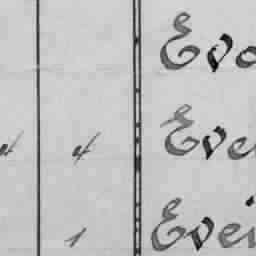 Evo
4 4 Eve
1 Evei